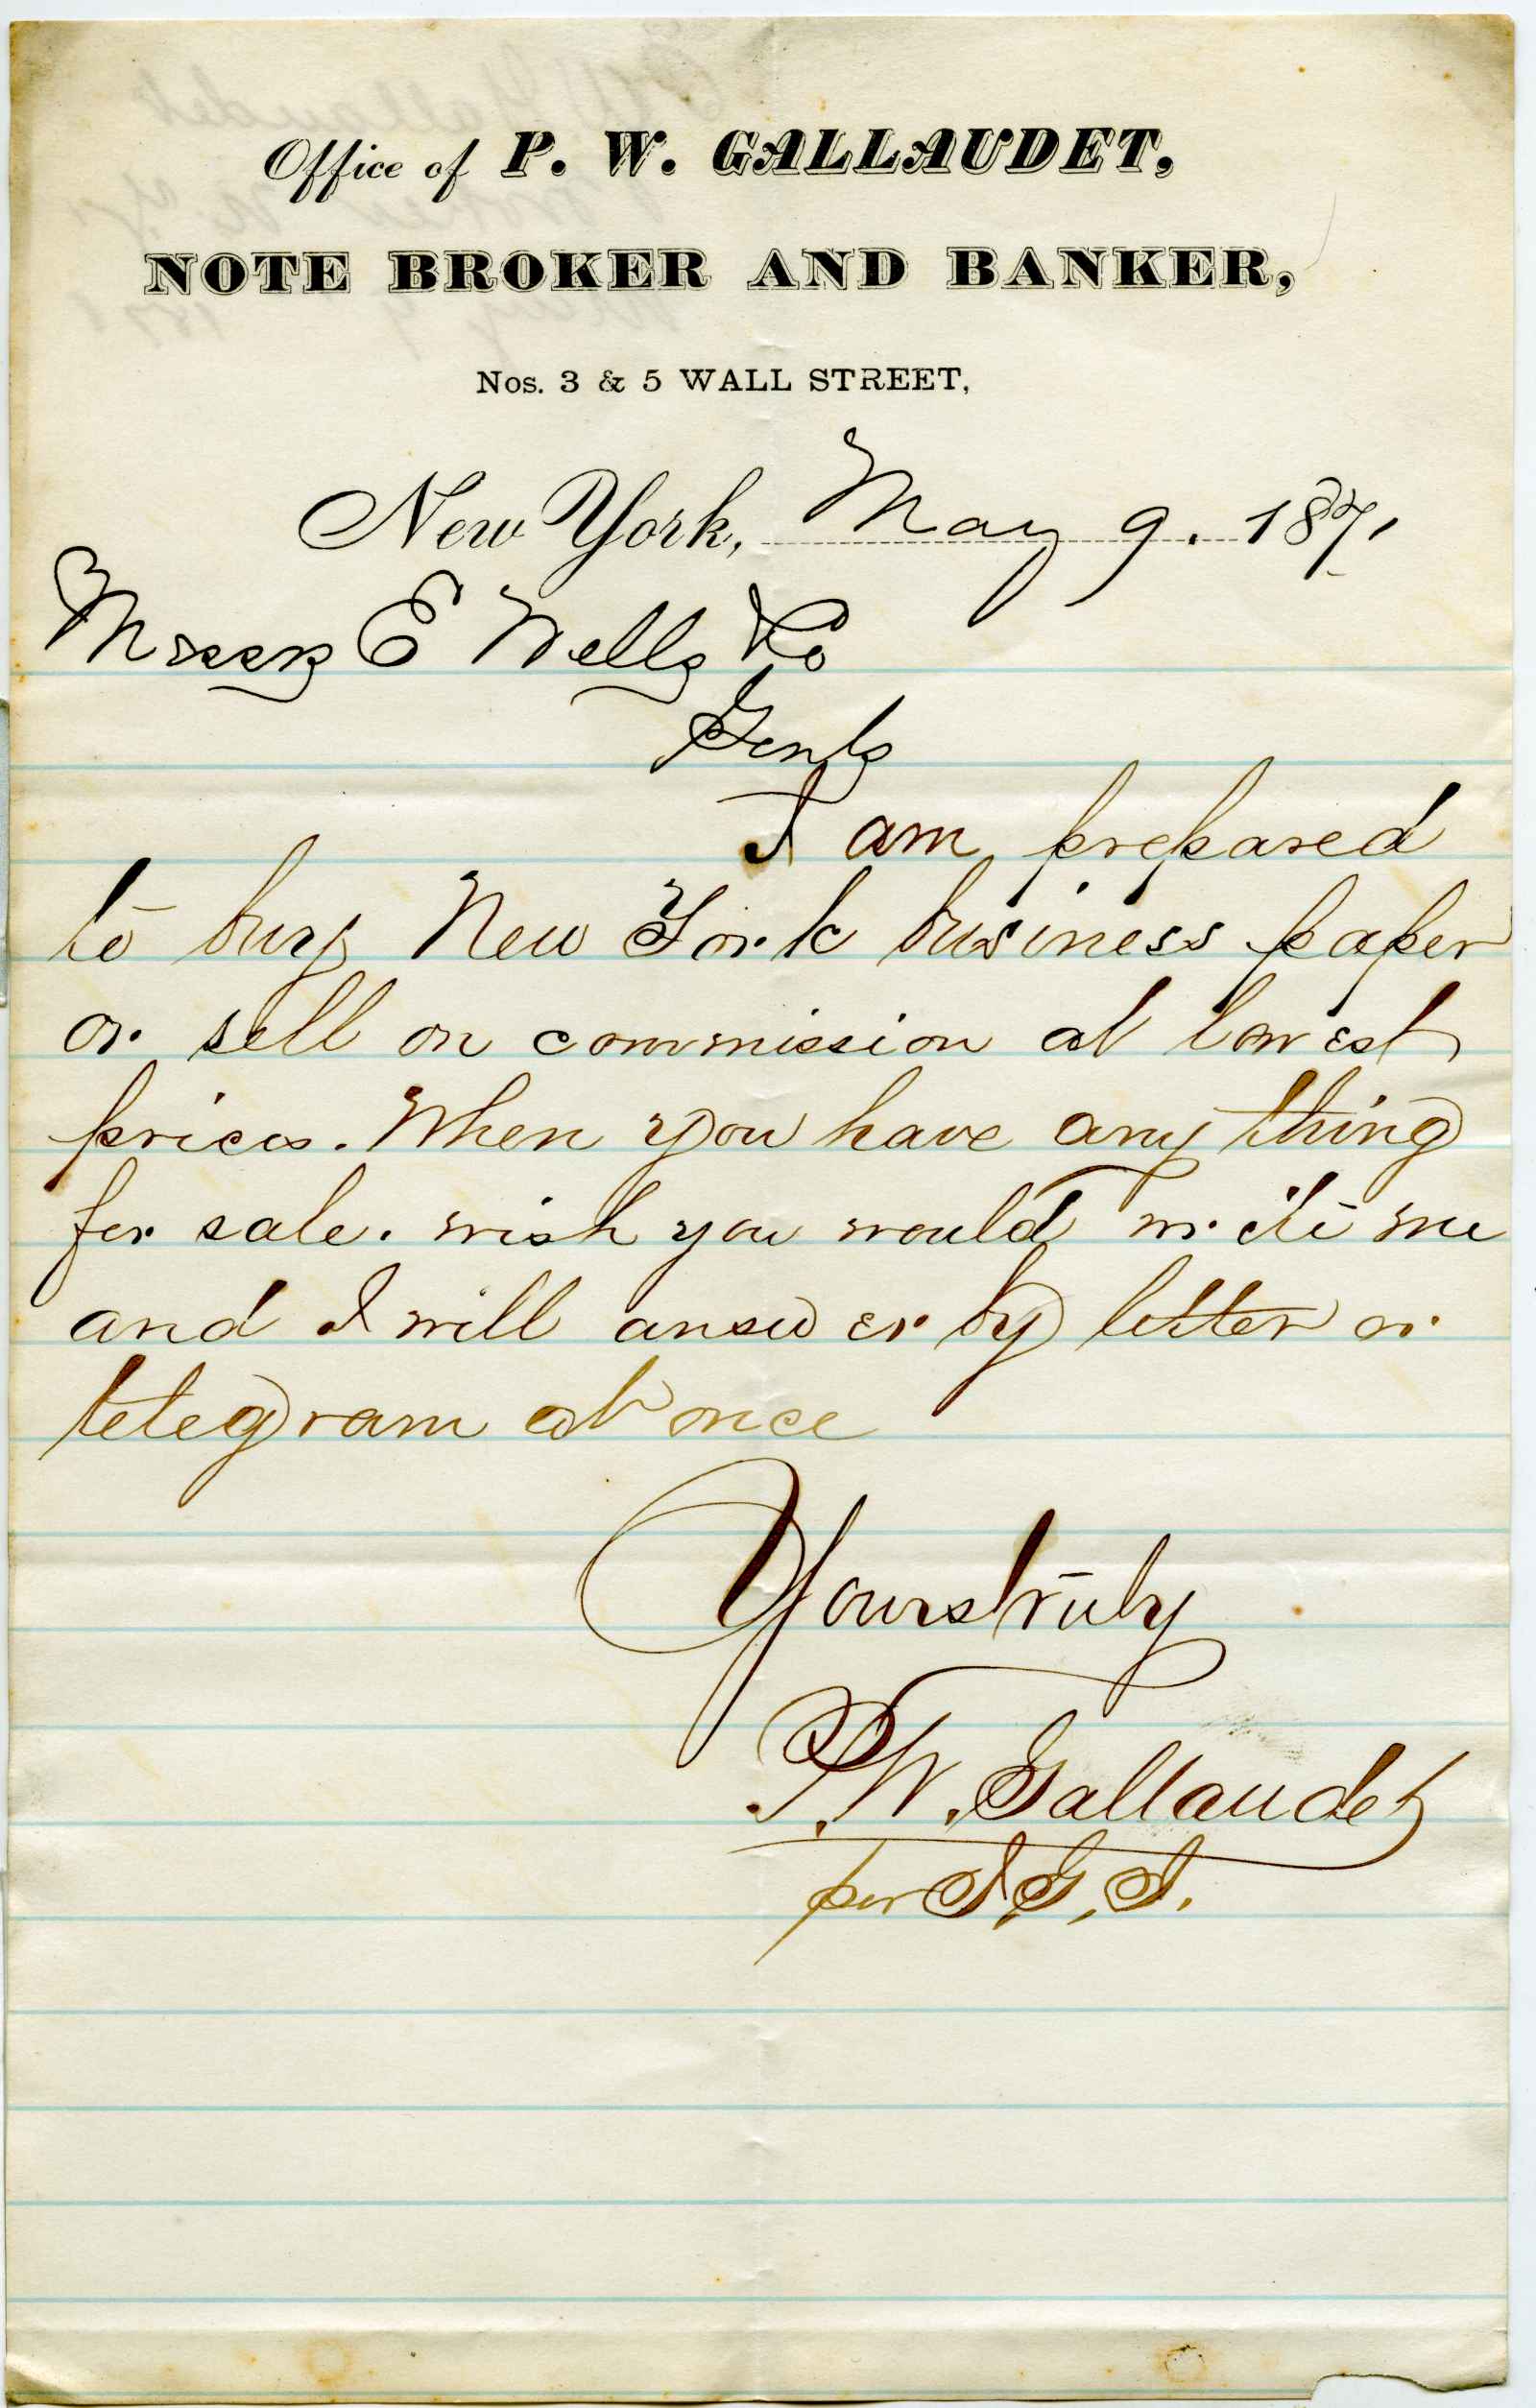 Office of P. W. GALLAUDET,
NOTE BROKER AND BANKER,
Nos. 3 & 5 WALL STREET,
New York, May 9. 1871
Messrs E Wells & Co
Gents
I am prepared
to buy New York business paper
or sell on commission at lowest
prices. When you have any thing
for sale. wish you would write me
and I will answer by letter or
telegram at once
Yours truly
P. W. Gallaudet
per